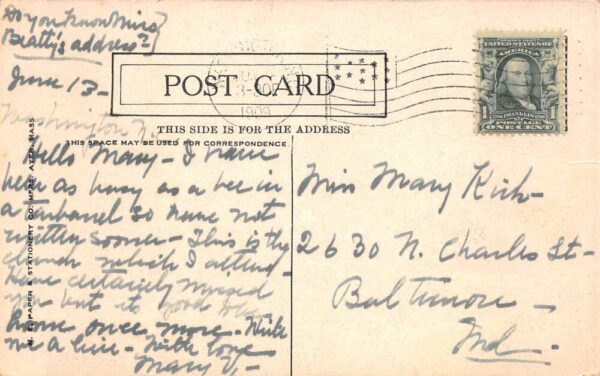 Do you know Mira
Beatty's address?
June 13-
Washington
POST CARD
1909
UNITED STATES OF AMERICA
1 FRANKLIN 1
POSTAGE
ONE CENT
THIS SIDE IS FOR THE ADDRESS
THIS SPACE MAY BE USED FOR CORRESPONDENCE
Hello Mary - I have
been as busy as a bee in
a tar barrel so have not
written sooner - This is the
church which I attend -
Have certainly missed
you but it's good to be
home once more. Write
me a line - With love
Mary V.-
Miss Mary Kirk -
2630 N. Charles St -
Baltimore -
Md -
PAPER & STATIONERY CO. MFRS. AYER, MASS